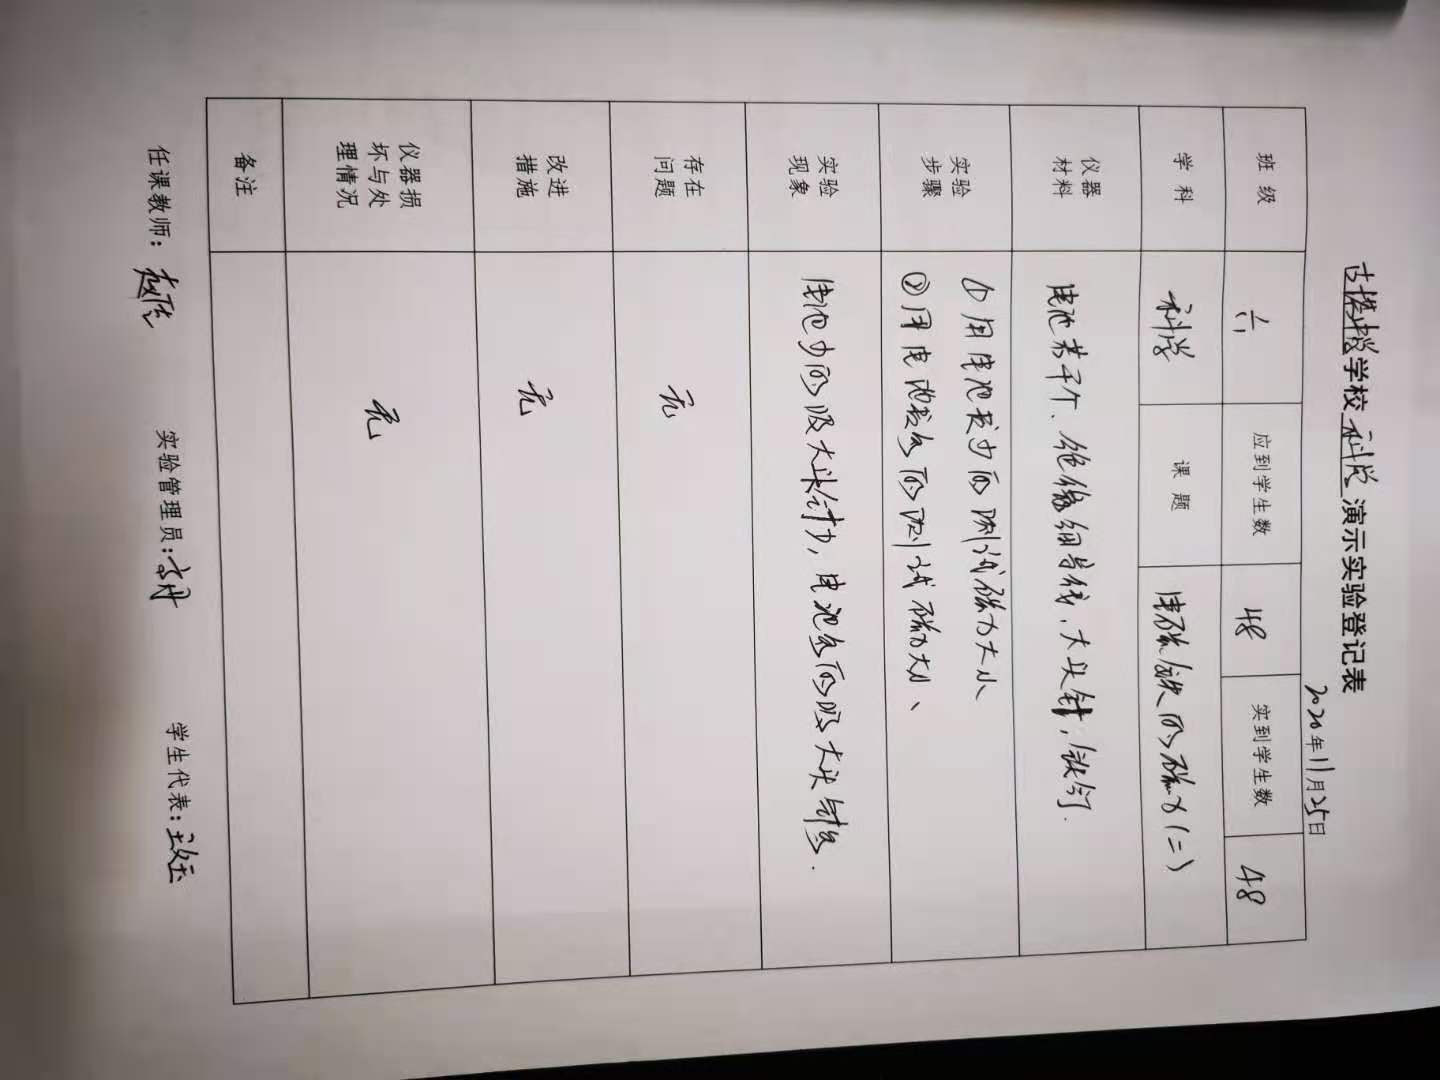 学校 科学 演示实验登记表
2020年11月25日
班级 六 应到学生数 48 实到学生数 48
学科 科学 课题 电磁铁的磁力(二)
仪器材料 电池若干个、绝缘细导线、大头针、铁钉.
实验步骤 ①用电池较少的测试磁力大小
②用电池较多的测试磁力大小、
实验现象 电池少的吸大头针少，电池多的吸大头针多.
存在问题 无
改进措施 无
仪器损坏与处理情况 无
备注
任课教师： 实验管理员： 学生代表：